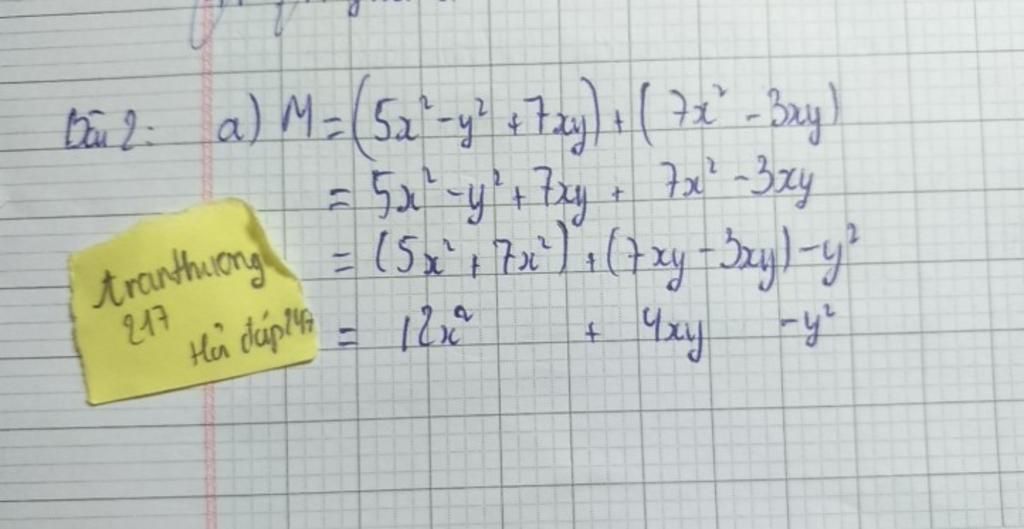 Bài 2: a) M = (5x² - y² + 7xy) + (7x² - 3xy)
= 5x² - y² + 7xy + 7x² - 3xy
= (5x² + 7x²) + (7xy - 3xy) - y²
= 12x² + 4xy - y²
tranthuong
217
Hỏi đáp 247